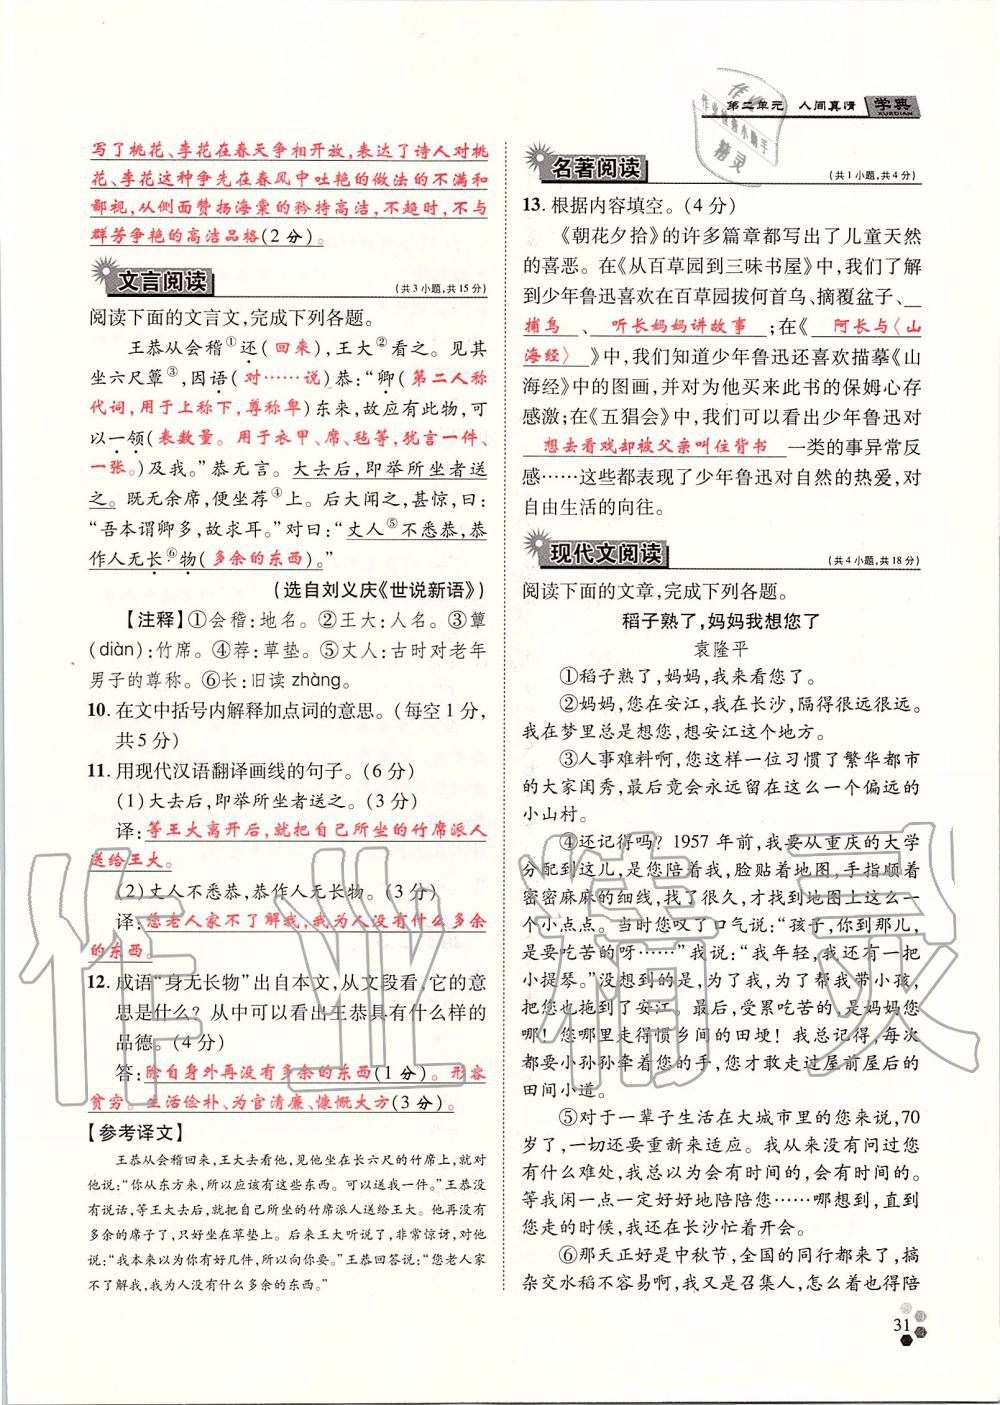 第二单元 人间真情 学典
XUEDIAN
写了桃花、李花在春天争相开放,表达了诗人对桃
花、李花这种争先在春风中吐艳的做法的不满和
鄙视,从侧面赞扬海棠的矜持高洁,不趋时,不与
群芳争艳的高洁品格(2分)。
文言阅读 (共3小题,共15分)
阅读下面的文言文,完成下列各题。
王恭从会稽①还(回来),王大②看之。见其
坐六尺簟③,因语(对……说)恭:“卿(第二人称
代词,用于上称下,尊称卑)东来,故应有此物,可
以一领(表数量。用于衣甲、席、毡等,犹言一件、
一张。)及我。”恭无言。大去后,即举所坐者送
之。既无余席,便坐荐④上。后大闻之,甚惊,曰:
“吾本谓卿多,故求耳。”对曰:“丈人⑤不悉恭,恭
作人无长⑥物(多余的东西)。”
(选自刘义庆《世说新语》)
【注释】①会稽:地名。②王大:人名。③簟
(diàn):竹席。④荐:草垫。⑤丈人:古时对老年
男子的尊称。⑥长:旧读zhàng。
10.在文中括号内解释加点词的意思。(每空1分,
共5分)
11.用现代汉语翻译画线的句子。(6分)
(1)大去后,即举所坐者送之。(3分)
译:等王大离开后,就把自己所坐的竹席派人
送给王大。
(2)丈人不悉恭,恭作人无长物。(3分)
译:您老人家不了解我,我为人没有什么多余
的东西。
12.成语“身无长物”出自本文,从文段看,它的意
思是什么?从中可以看出王恭具有什么样的
品德。(4分)
答:除自身外再没有多余的东西(1分)。形容
贫穷。生活俭朴、为官清廉、慷慨大方(3分)。
【参考译文】
王恭从会稽回来,王大去看他,见他坐在长六尺的竹席上,就对
王恭说:“你从东方来,所以应该有这些东西。可以送我一件。”王恭
没有说话,等王大走后,就把自己所坐的竹席派人送给王大。他再没有
多余的席子了,只好坐在草垫上。后来王大听说了,非常惊讶,对他
说:“我本来以为你有好几件,所以向你要。”王恭回答说:“您老人家
不了解我,我为人没有什么多余的东西。”
名著阅读 (共1小题,共4分)
13.根据内容填空。(4分)
《朝花夕拾》的许多篇章都写出了儿童天然
的喜恶。在《从百草园到三味书屋》中,我们了解
到少年鲁迅喜欢在百草园拔何首乌、摘覆盆子、
捕鸟、听长妈妈讲故事;在《阿长与〈山
海经〉》中,我们知道少年鲁迅还喜欢描摹《山
海经》中的图画,并对为他买来此书的保姆心存
感激;在《五猖会》中,我们可以看出少年鲁迅对
想去看戏却被父亲叫住背书一类的事异常反
感……这些都表现了少年鲁迅对自然的热爱,对
自由生活的向往。
现代文阅读 (共4小题,共18分)
阅读下面的文章,完成下列各题。
稻子熟了,妈妈我想您了
袁隆平
①稻子熟了,妈妈,我来看您了。
②妈妈,您在安江,我在长沙,隔得很远很远。
我在梦里总是想您,想安江这个地方。
③人事难料啊,您这样一位习惯了繁华都市
的大家闺秀,最后竟会永远留在这么一个偏远的
小山村。
④还记得吗?1957年前,我要从重庆的大学
分配到这儿,是您陪着我,脸贴着地图,手指顺着
密密麻麻的细线,找了很久,才找到地图上这么一
个小点点。当时您叹了口气说:“孩子,你到那儿,
是要吃苦的呀……”我说:“我年轻,我还有一把
小提琴。”没想到的是,为了我,为了帮我带小孩,
把您也拖到了安江 最后,受累吃苦的是妈妈您
哪!您哪里走得惯乡间的田埂!我总记得,每次
都要小孙孙牵着您的手,您才敢走过屋前屋后的
田间小道。
⑤对于一辈子生活在大城市里的您来说,70
岁了,一切还要重新来适应。我从来没有问过您
有什么难处,我总以为会有时间的,会有时间的。
等我闲一点一定好好地陪陪您……哪想到,直到
您走的时候,我还在长沙忙着开会。
⑥那天正好是中秋节,全国的同行都来了,搞
杂交水稻不容易啊,我又是召集人,怎么着也得陪
31
作业精灵